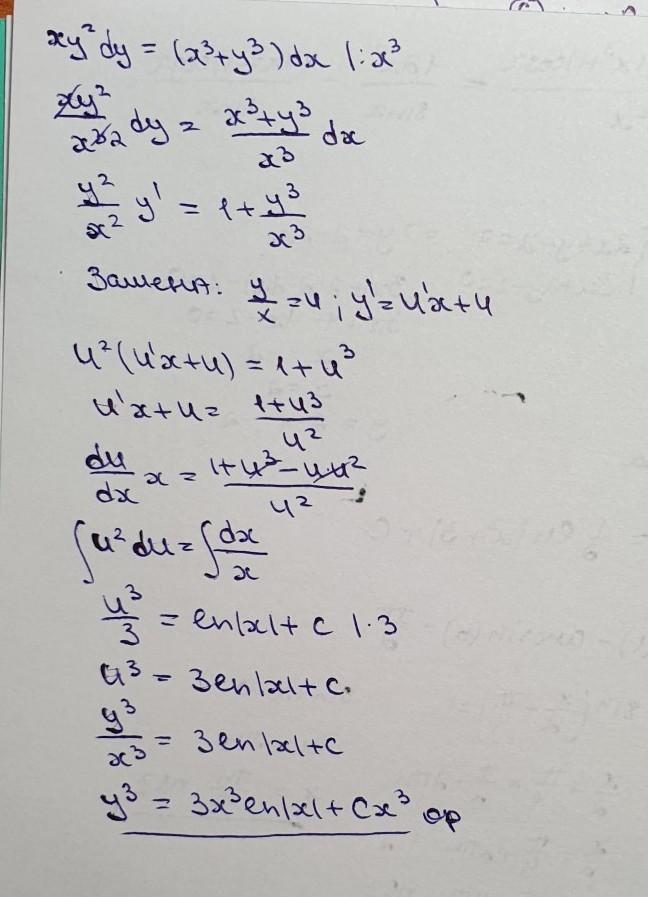 xy²dy = (x³+y³)dx |:x³
xy²/x³2 dy = (x³+y³)/x³ dx
y²/x² y' = 1 + y³/x³
Замена: y/x = u ; y' = u'x+u
u²(u'x+u) = 1+u³
u'x+u = (1+u³)/u²
du/dx x = (1+u³-u·u²)/u² ;
∫u²du = ∫dx/x
u³/3 = ln|x| + c |·3
u³ = 3ln|x| + c.
y³/x³ = 3ln|x| + c
y³ = 3x³ln|x| + Cx³ ор